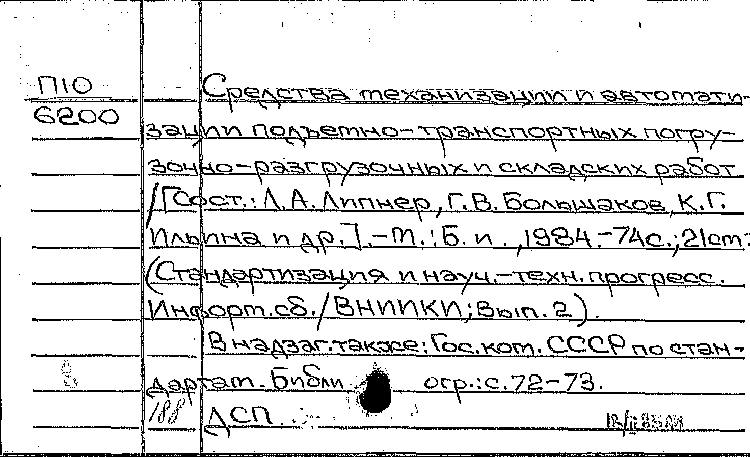 П10
6200
Средства механизации и автомати-
зации подъемно-транспортных погру-
зочно-разгрузочных и складских работ
/[Сост.: Л.А. Липнер, Г.В. Большаков, К.Г.
Ильина и др.]. - М.: Б.и., 1984. - 74с.; 21см.
(Стандартизация и науч.-техн. прогресс.
Информ. сб./ВНИИКИ; Вып. 2).
В надзаг. также: Гос. ком. СССР по стан-
дартам. - Библиогр.: с. 72-73.
188 ДСП